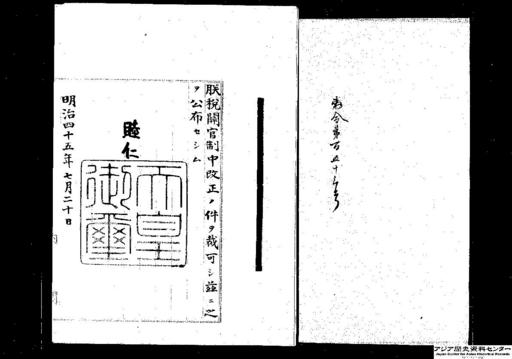 勅令第百五十号
朕税関官制中改正ノ件ヲ裁可シ茲ニ之
ヲ公布セシム
睦仁
天皇
御璽
明治四十五年七月二十日
アジア歴史資料センター
Japan Center for Asian Historical Records